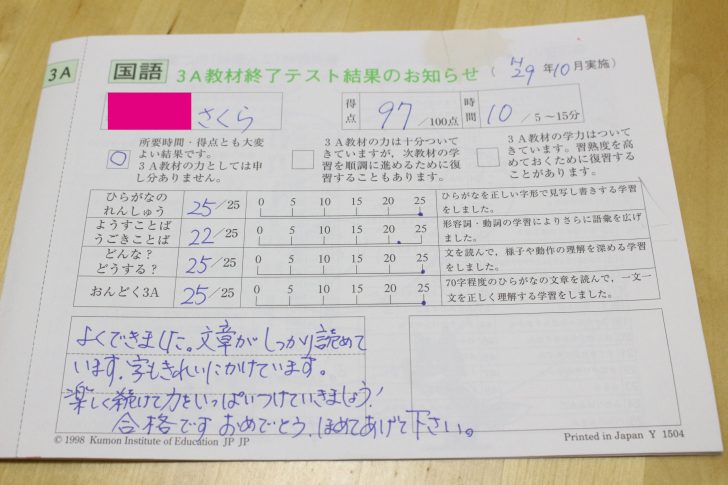 3A 国語 3A教材終了テスト結果のお知らせ (H29年10月実施)
さくら 得点 97/100点 時間 10/5～15分
○ 所要時間・得点とも大変よい結果です。3A教材の力としては申し分ありません。
3A教材の力は十分ついてきていますが、次教材の学習を順調に進めるために復習することもあります。
3A教材の学力はついてきています。習熟度を高めておくために復習することがあります。
ひらがなのれんしゅう 25/25 0 5 10 15 20 25 ひらがなを正しい字形で見写し書きする学習をしました。
ようすことばうごきことば 22/25 0 5 10 15 20 25 形容詞・動詞の学習によりさらに語彙を広げました。
どんな？どうする？ 25/25 0 5 10 15 20 25 文を読んで、様子や動作の理解を深める学習をしました。
おんどく3A 25/25 0 5 10 15 20 25 70字程度のひらがなの文章を読んで、一文一文を正しく理解する学習をしました。
よくできました。文章がしっかり読めて
います。字もきれいにかけています。
楽しく続けて力をいっぱいつけていきましょう！
合格です おめでとう、ほめてあげて下さい。
© 1998 Kumon Institute of Education JP JP Printed in Japan Y 1504